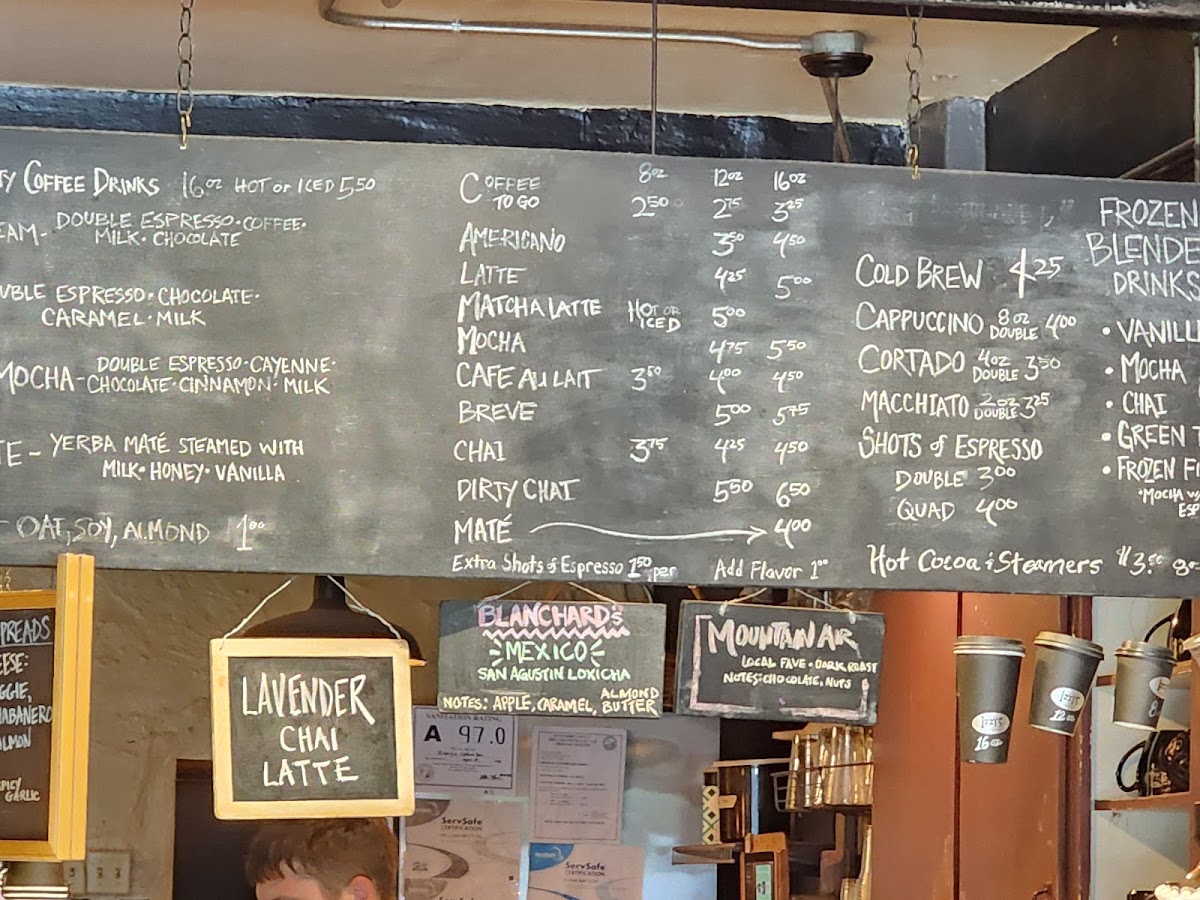 COFFEE DRINKS 16oz HOT or ICED 5.50
DOUBLE ESPRESSO·COFFEE·
MILK·CHOCOLATE
ESPRESSO·CHOCOLATE·
CARAMEL·MILK
MOCHA- DOUBLE ESPRESSO·CAYENNE·
CHOCOLATE·CINNAMON·MILK
YERBA MATÉ STEAMED WITH
MILK·HONEY·VANILLA
OAT, SOY, ALMOND 1.00
8oz 12oz 16oz
COFFEE TO GO 2.50 2.75 3.25
AMERICANO 3.50 4.50
LATTE 4.25 5.00
MATCHA LATTE HOT OR ICED 5.00
MOCHA 4.75 5.50
CAFE AU LAIT 3.50 4.00 4.50
BREVE 5.00 5.75
CHAI 3.75 4.25 4.50
DIRTY CHAI 5.50 6.50
MATÉ 4.00
Extra Shots of Espresso 1.50 per Add Flavor 1.00
COLD BREW 4.25
CAPPUCCINO 8oz DOUBLE 4.00
CORTADO 4oz DOUBLE 3.50
MACCHIATO 2oz DOUBLE 3.25
SHOTS of ESPRESSO
DOUBLE 3.00
QUAD 4.00
Hot Cocoa & Steamers $3.50
FROZEN
DRINKS
• MOCHA
• CHAI
• GREEN
• FROZEN
"MOCHA
LAVENDER
CHAI
LATTE
BLANCHARD'S
MEXICO
SAN AGUSTIN LOXICHA
NOTES: APPLE, CARAMEL, ALMOND BUTTER
MOUNTAIN AIR
LOCAL FAVE · DARK ROAST
NOTES: CHOCOLATE, NUTS
SANITATION RATING
A 97.0
ServSafe
CERTIFICATION
ServSafe
CERTIFICATION
Izzy's
16oz
Izzy's
12oz
8
GARLIC